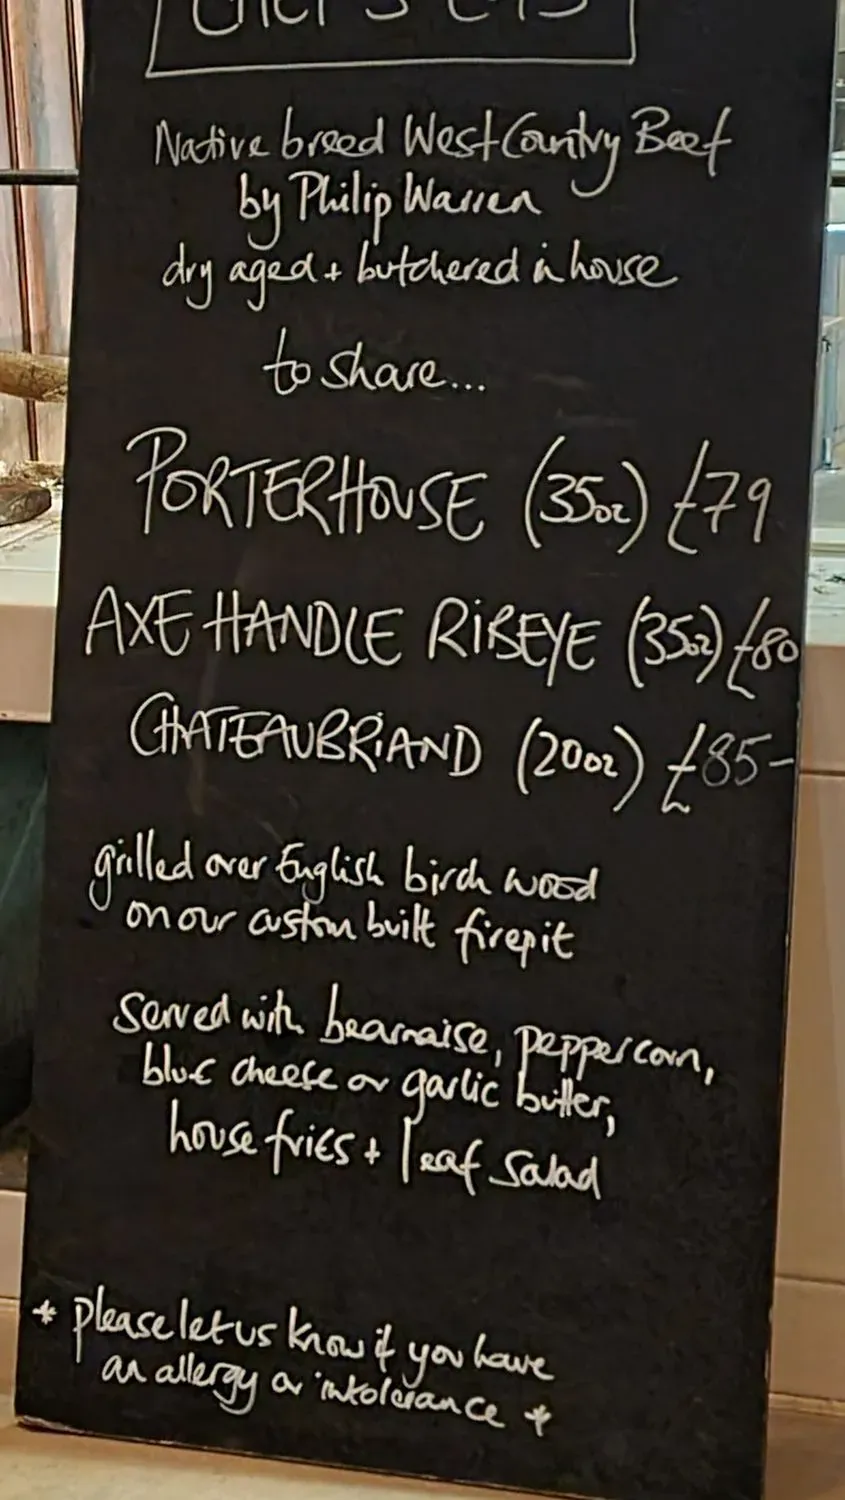 CHEF'S CUTS
Native breed West Country Beef
by Philip Warren
dry aged + butchered in house
to share...
PORTERHOUSE (35oz) £79
AXE HANDLE RIBEYE (35oz) £80
CHATEAUBRIAND (20oz) £85-
grilled over English birch wood
on our custom built firepit
served with bearnaise, peppercorn,
blue cheese or garlic butter,
house fries + leaf salad
* please let us know if you have
an allergy or intolerance *